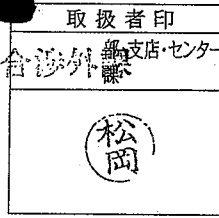 取扱者印
渉外課
部
課
支店・センター
松岡